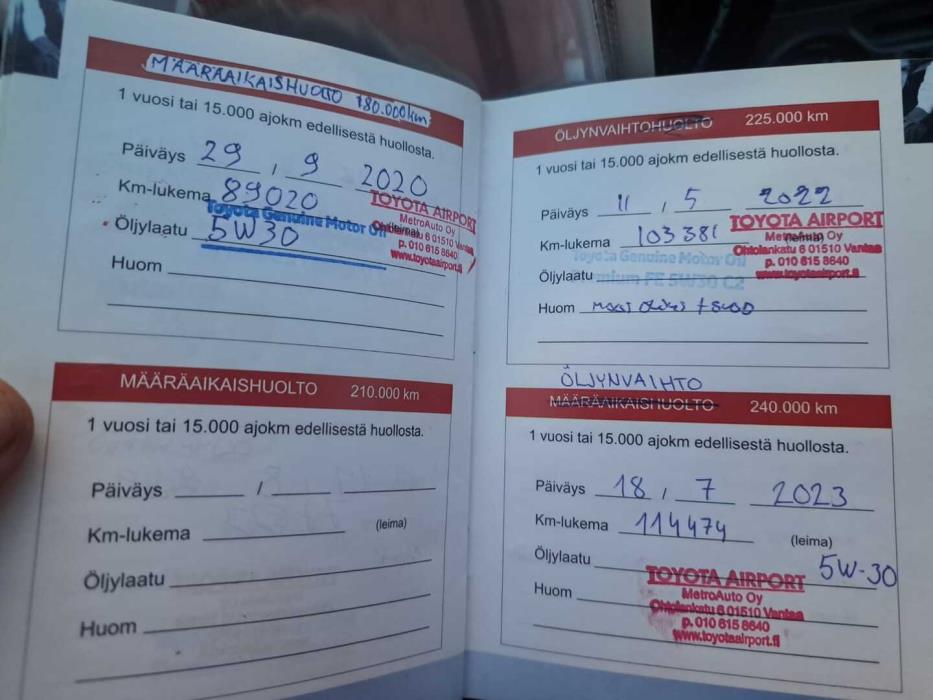 MÄÄRÄAIKAISHUOLTO 180.000km
1 vuosi tai 15.000 ajokm edellisestä huollosta.
Päiväys 29 / 9 2020
Km-lukema 89020
TOYOTA AIRPORT
MetroAuto Oy
Ohtolankatu 6 01510 Vantaa
p. 010 615 8640
www.toyotaairport.fi
Toyota Genuine Motor Oil
(leima)
Öljylaatu 5W30
Huom
MÄÄRÄAIKAISHUOLTO 210.000 km
1 vuosi tai 15.000 ajokm edellisestä huollosta.
Päiväys /
Km-lukema (leima)
Öljylaatu
Huom
ÖLJYNVAIHTOHUOLTO 225.000 km
1 vuosi tai 15.000 ajokm edellisestä huollosta.
Päiväys 11 / 5 2022
Km-lukema 103381
TOYOTA AIRPORT
MetroAuto Oy
(leima)
Ohtolankatu 6 01510 Vantaa
p. 010 615 8640
www.toyotaairport.fi
Toyota Genuine Motor Oil
Premium FE 5W30 C2
Öljylaatu
Huom
ÖLJYNVAIHTO
MÄÄRÄAIKAISHUOLTO 240.000 km
1 vuosi tai 15.000 ajokm edellisestä huollosta.
Päiväys 18 / 7 2023
Km-lukema 114474
(leima)
Öljylaatu 5W-30
Huom
TOYOTA AIRPORT
MetroAuto Oy
Ohtolankatu 6 01510 Vantaa
p. 010 615 8640
www.toyotaairport.fi